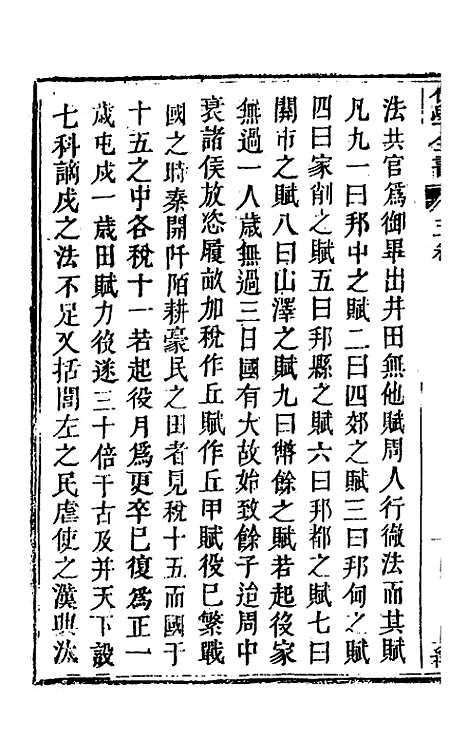 法共官爲御畢出井田無他賦周人行徹法而其賦
凡九一曰邦中之賦二曰四郊之賦三曰邦甸之賦
四曰家削之賦五曰邦縣之賦六曰邦都之賦七曰
關市之賦八曰山澤之賦九曰幣餘之賦若起役家
無過一人歲無過三日國有大故始致餘子迨周中
衰諸侯放恣履畝加稅作丘賦作丘甲賦役已繁戰
國之時秦開阡陌耕豪民之田者見稅十五而國于
十五之中各稅十一若起役月爲更卒已復爲正一
歲屯戍一歲田賦力役遂三十倍于古及并天下設
七科謫戍之法不足又括閭左之民虐使之漢興汰